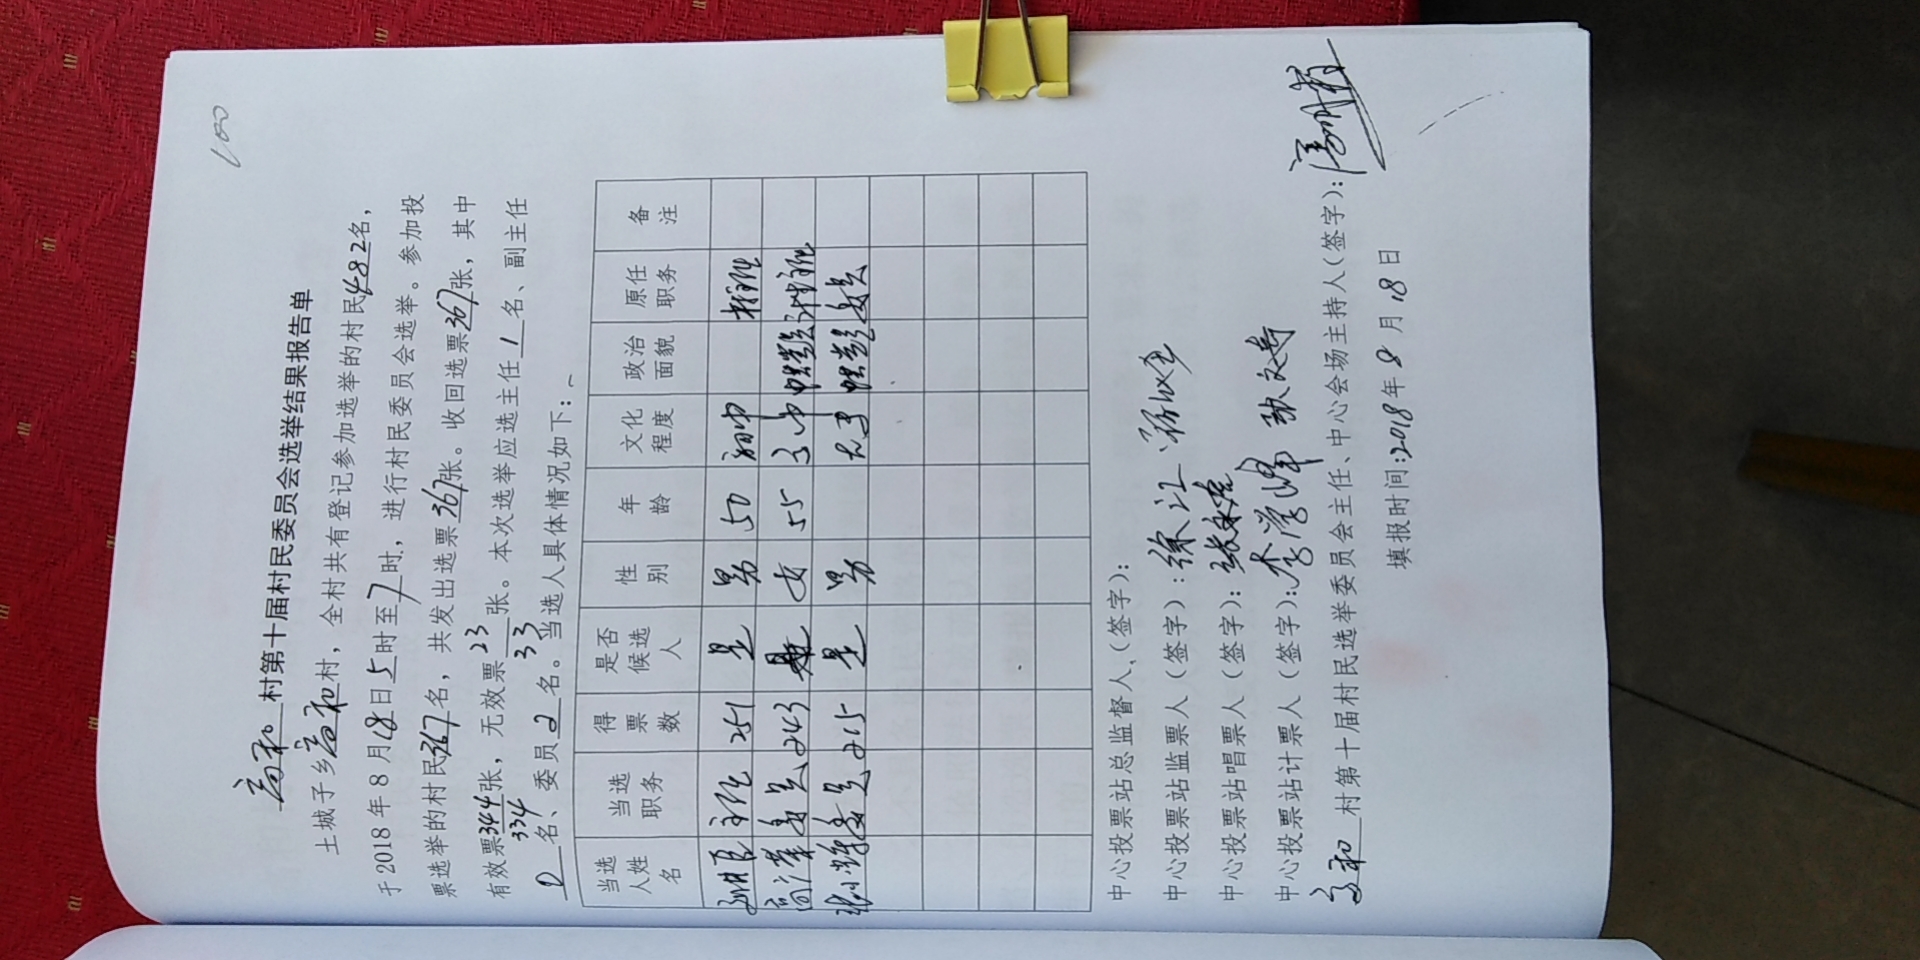 高和村第十届村民委员会选举结果报告单
土城子乡高和村，全村共有登记参加选举的村民482名，
于2018年8月18日5时至7时，进行村民委员会选举。参加投
票选举的村民367名，共发出选票367张。收回选票367张，其中
有效票344张，无效票23张。本次选举应选主任1名、副主任
334 33
0名、委员2名。当选人具体情况如下：
当选人姓名 当选职务 得票数 是否候选人 性别 年龄 文化程度 政治面貌 原任职务 备注
主任 251 是 男 50 初中 村主任
委员 243 是 女 55 高中 中共党员
委员 215 是 男 大学 中共党员 委员
中心投票站总监督人（签字）：
中心投票站监票人（签字）：徐江
中心投票站唱票人（签字）：
中心投票站计票人（签字）：李学峰 张文寿
高和村第十届村民选举委员会主任、中心会场主持人（签字）：
填报时间：2018年8月18日